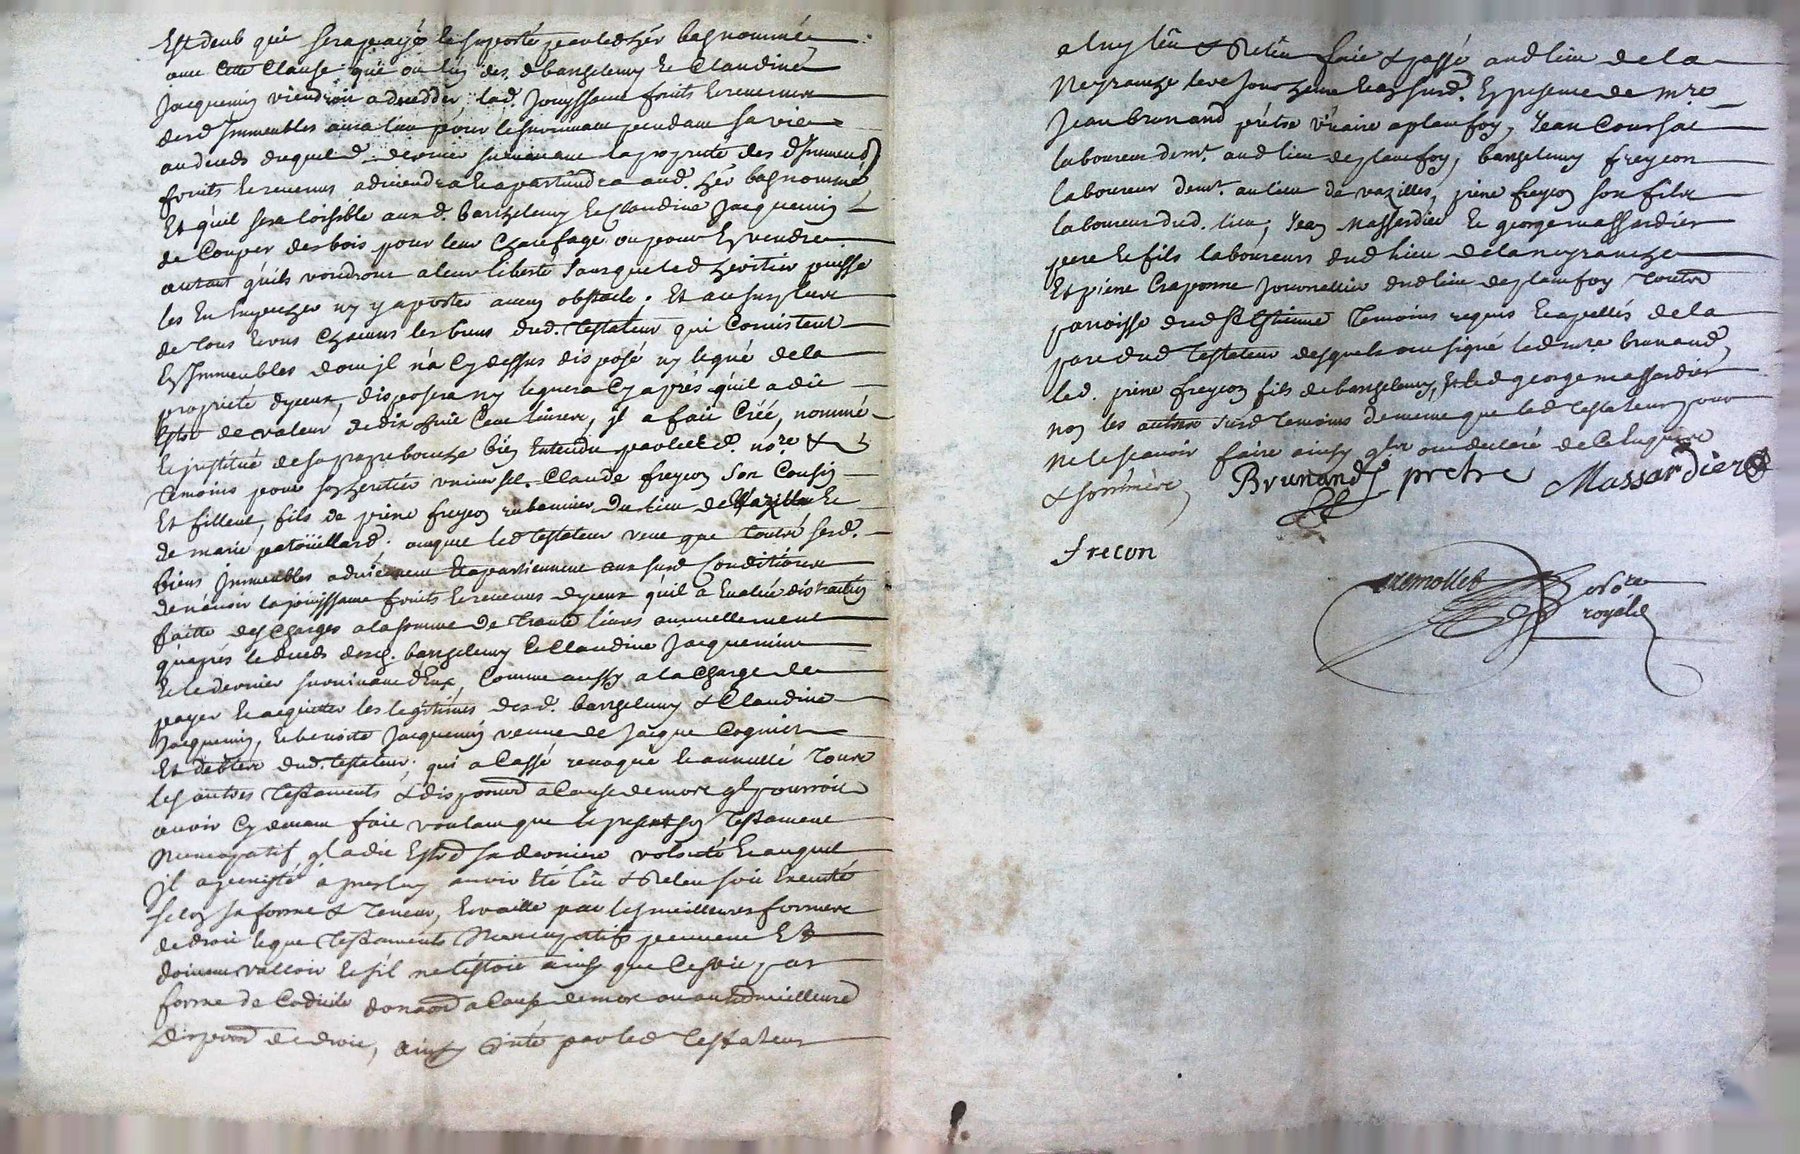 Est deub qui sera payé & suporté par led. hér bas nommé
avec cette clause que où l'un des d. barthelemy & Claudine
Jacquemin viendroit a deceddér, lad. Jouyssance fruits & revenus
desd. Immeubles aura lieu pour le survivant pendant sa vie
au deceds duquel d. dernier survivant la proprieté des d. Immeub
fruits & revenus adviendra & apartiendra aud. hér bas nommé
Et qu'il sera loisible aux d. barthelemy & Claudine Jacquemin
de Couper des bois pour leur Chaufage ou pour En vendre
autant qu'ils voudront a leur liberté sans que led. heritier puisse
les En Empecher ny y aporter aucun obstacle. Et au surplus
de tous & uns Chacuns les biens dud. testateur qui Consistent
En Immeubles dont il n'a Cy dessus disposé ny legué de la
proprieté d'yceux, disposera ny leguera Cy après qu'il a dit
Estre de valeur de dix huit Cent livres, il a fait Créé, nommé
& institué de sa propre bouche bien Entendu par led. d. nore. &
temoins pour son heritier universel Claude freycon son Cousin
Et filleul, fils de pierre freycon rubannier du lieu de Vazilles &
de marie patouillard. auquel led. testateur veut que toutes sesd.
biens Immeubles adviennent & apartiennent aux susd. Conditions
de n'avoir la jouyssance fruits & revenus d'yceux qu'il a Evalué distraction
faitte des Charges a la somme de trante livres annuellement
qu'après le deceds desd. barthelemy & Claudine Jacquemin
& le dernier survivant d'Eux, Comme aussy a la Charge de
payer & acquitter les legitimes desd. barthelemy & Claudine
Jacquemin, & benoite Jacquemin veuve de Jacque Cognier
Et debtes dud. testateur, qui a Cassé revoqué & annullé tous
les autres testaments & dispositions a Cause de mort qu'il pourroit
avoir Cy devant fait voulant que le present son testament
Nuncupatif, qu'il a dit Estre sa derniere volonté & auquel
il a persisté apres luy avoir Eté lû & Relu soit Executé
selon sa forme & teneur, & vaille par les meilleures formes
de droit & que testaments Nuncupatifs peuvent Et
doivent valloir & s'il ne l'étoit ainsy que ce soit par
forme de Codicile donnaon a Cause de mort ou autre meilleure
Dispoon de droit, ainsy dicté par led. testateur
a luy lû & Relû fait & passé aud. lieu de la
Neyranche les jour heure & an susd. En presence de mre
Jean brunand prêtre viCaire a planfoy, Jean Coursat
laboureur demt. aud. lieu de planfoy, barthelemy freycon
laboureur demt. au lieu de vazilles, pierre freycon son fils
laboureur dud. lieu, Jean Massardier & george massardier
pere & fils laboureurs dud. lieu de la neyranche
Et pierre Craponne Journallier dud. lieu de planfoy toutes
paroisse dud. St Estienne temoins requis & apellés de la
part dud. testateur desquels ont signé led. mre. brunand,
led. pierre freycon fils de barthelemy, & led. george massardier
non les autres susd. temoins de meme que led. testateur pour
ne le scavoir faire ainsy qu'ils ont declaré de Ce Enquis
& sommés
Brunand pretre
Massardier
frecon
tremollet nore
royal